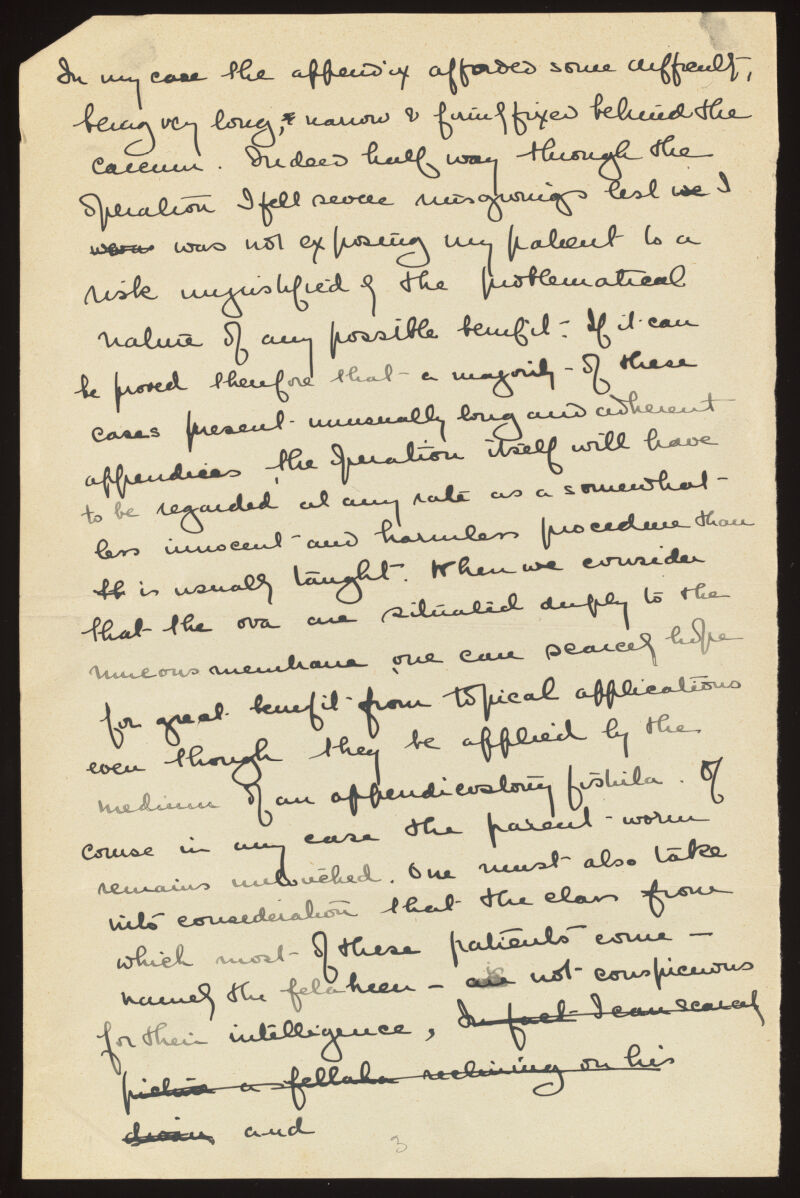 In my case the appendix afforded some difficulty,
being very long, & narrow & firmly fixed behind the
caecum. Indeed half way through the
operation I felt severe misgivings lest we I
were was not exposing my patient to a
risk unjustified by the problematical
nature of any possible benefit. If it can
be proved therefore that a majority of these
cases present unusually long and adherent
appendices, the operation itself will have
to be regarded at any rate as a somewhat
less innocent and harmless procedure than
it is usually taught. When we consider
that the ova are situated deeply to the
mucous membrane, one can scarcely hope
for great benefit from topical applications
even though they be applied by the
medium of an appendicostomy fistula. Of
course in any case the parent worm
remains untouched. One must also take
into consideration that the class from
which most of these patients come —
namely the felaheen — is not conspicuous
for their intelligence, In fact I can scarcely
picture a fellaha reclining on his
divan and
3